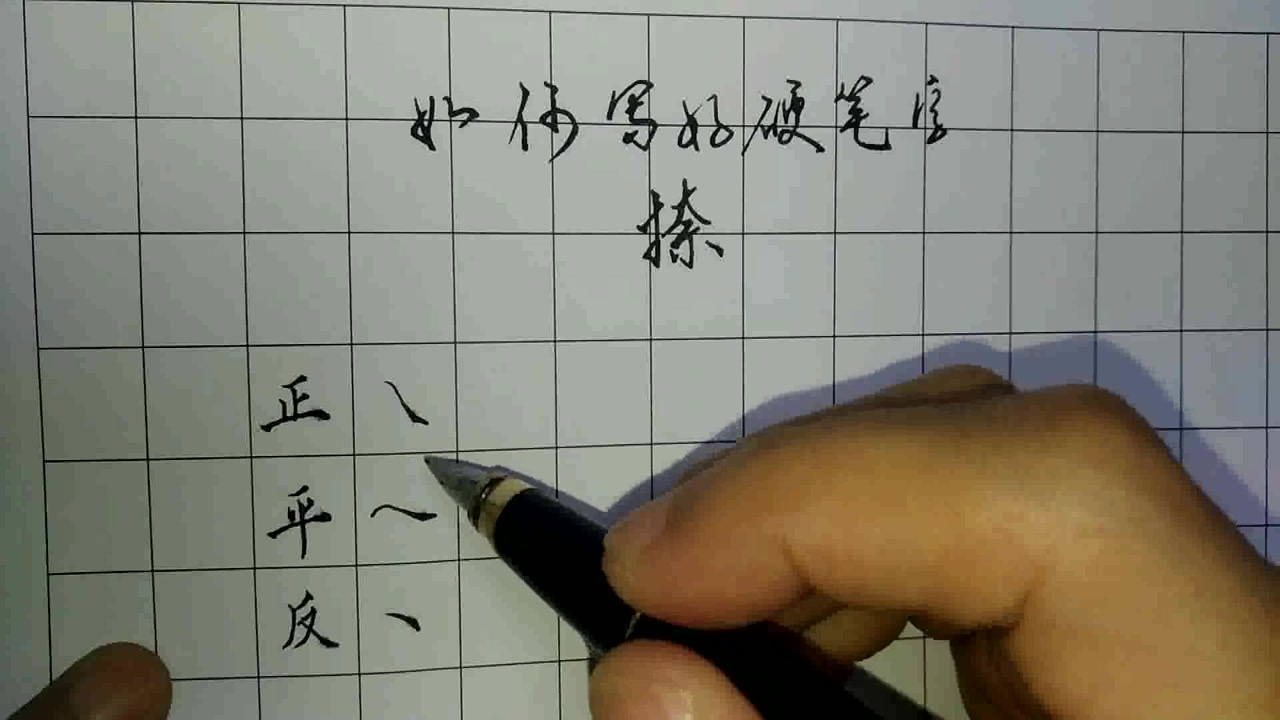 如何写好硬笔字
捺
正㇏
平㇏
反㇔